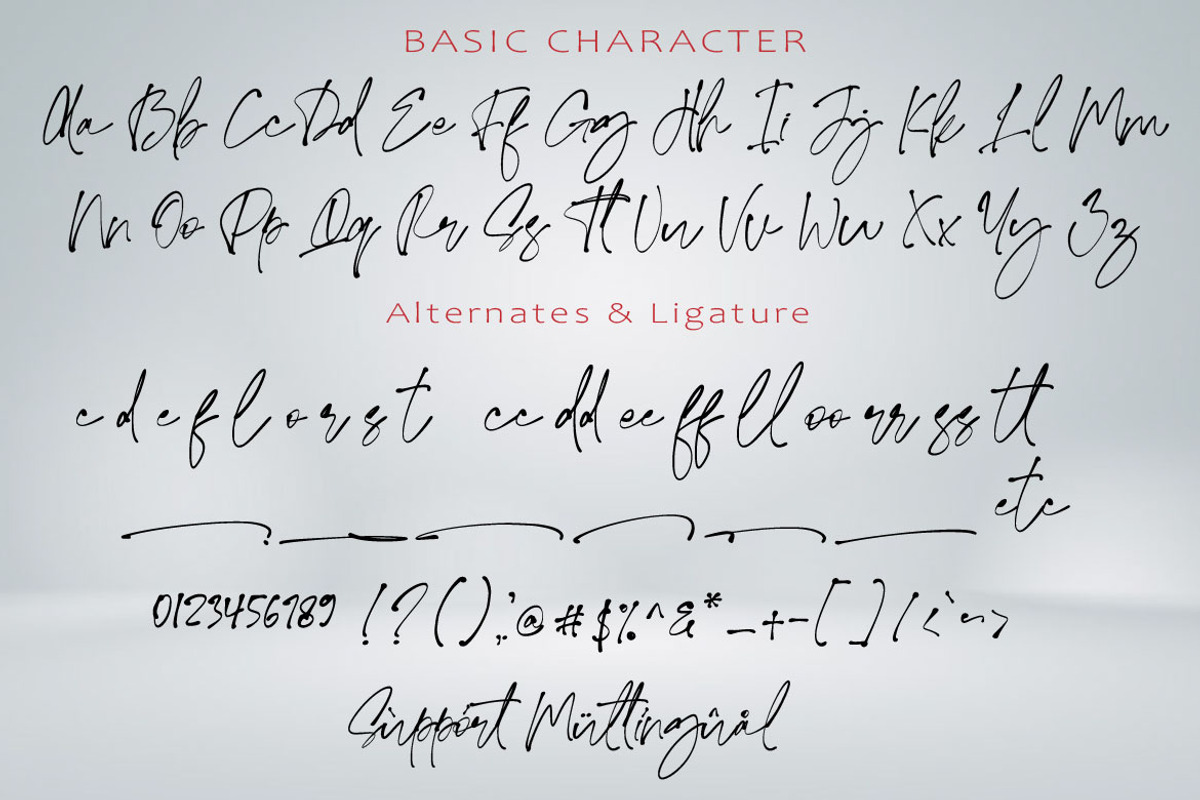 BASIC CHARACTER
Aa Bb Cc Dd Ee Ff Gg Hh Ii Jj Kk Ll Mm
Nn Oo Pp Qq Rr Ss Tt Uu Vv Ww Xx Yy Zz
Alternates & Ligature
c d e f l o r s t cc dd ee ff ll oo rr ss tt
etc
0123456789 !?();,:'@#$%^&*_+-[]/<`~>
Sùppórt Müttingûål